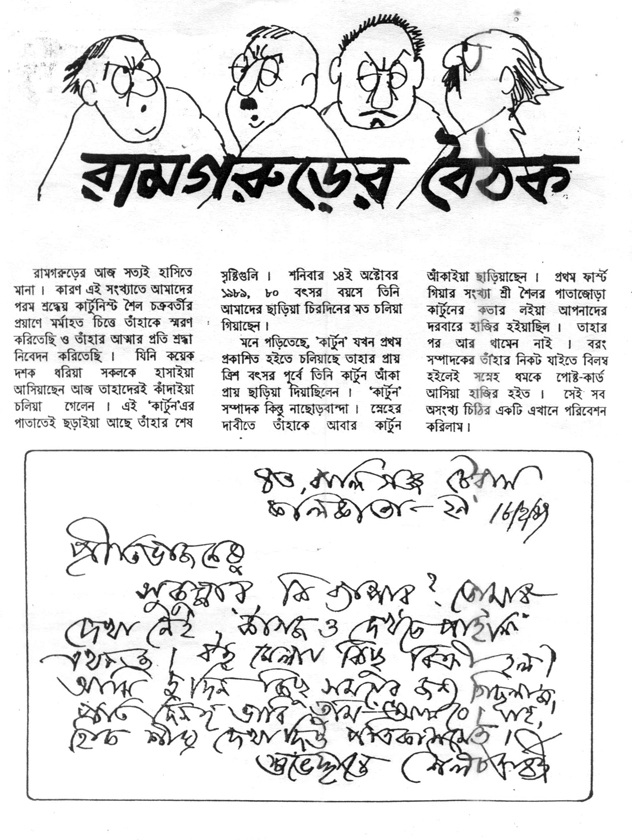 রামগরুড়ের বৈঠক
রামগরুড়ের আজ সত্যই হাসিতে
মানা । কারণ এই সংখ্যাতে আমাদের
পরম শ্রদ্ধেয় কার্টুনিস্ট শৈল চক্রবর্তীর
প্রয়াণে মর্মাহত চিত্তে তাঁহাকে স্মরণ
করিতেছি ও তাঁহার আত্মার প্রতি শ্রদ্ধা
নিবেদন করিতেছি । যিনি কয়েক
দশক ধরিয়া সকলকে হাসাইয়া
আসিয়াছেন আজ তাহাদেরই কাঁদাইয়া
চলিয়া গেলেন । এই ‘কার্টুন’এর
পাতাতেই ছড়াইয়া আছে তাঁহার শেষ
সৃষ্টিগুলি । শনিবার ১৪ই অক্টোবর
১৯৮৯, ৮০ বৎসর বয়সে তিনি
আমাদের ছাড়িয়া চিরদিনের মত চলিয়া
গিয়াছেন ।
মনে পড়িতেছে, ‘কার্টুন’ যখন প্রথম
প্রকাশিত হইতে চলিয়াছে তাহার প্রায়
ত্রিশ বৎসর পূর্বে তিনি কার্টুন আঁকা
প্রায় ছাড়িয়া দিয়াছিলেন । ‘কার্টুন’
সম্পাদক কিন্তু নাছোড়বান্দা । স্নেহের
দাবীতে তাঁহাকে আবার কার্টুন
আঁকাইয়া ছাড়িয়াছেন । প্রথম ফার্স্ট
গিয়ার সংখ্যা শ্রী শৈলর পাতাজোড়া
কার্টুনের কতার লইয়া আপনাদের
দরবারে হাজির হইয়াছিল । তাহার
পর আর থামেন নাই । বরং
সম্পাদকের তাঁহার নিকট যাইতে বিলম্ব
হইলেই সস্নেহ ধমকে পোষ্ট-কার্ড
আসিয়া হাজির হইত । সেই সব
অসংখ্য চিঠির একটি এখানে পরিবেশন
করিলাম ।
বালিগঞ্জ টেরাস
কলিকাতা - ২৯
প্রীতিভাজনেষু
সুকুমার কি ব্যাপার ? তোমার
দেখা নেই কাগজও দেখতে পাইনি
এখনও । বই মেলায় কিছু বিক্রী হল ?
আমি দুদিন কিছু সময়ের জন্য গিছলাম,
প্রতি দিনই ভাবি তুমি আসবে । যাহ,
দেখা দিও পত্রিকাসমেত ।
শুভেচ্ছান্তে শৈল চক্রবর্তী